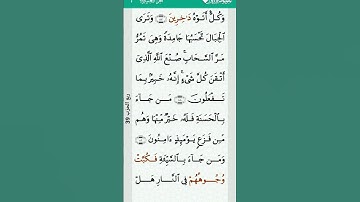 وَكُلٌّ أَتَوْهُ دَاخِرِينَ ۝ وَتَرَى
الْجِبَالَ تَحْسَبُهَا جَامِدَةً وَهِيَ تَمُرُّ
مَرَّ السَّحَابِ ۚ صُنْعَ اللَّهِ الَّذِي
أَتْقَنَ كُلَّ شَيْءٍ ۚ إِنَّهُ خَبِيرٌ بِمَا
تَفْعَلُونَ ۝ مَن جَاءَ
بِالْحَسَنَةِ فَلَهُ خَيْرٌ مِّنْهَا وَهُم
مِّن فَزَعٍ يَوْمَئِذٍ آمِنُونَ ۝
وَمَن جَاءَ بِالسَّيِّئَةِ فَكُبَّتْ
وُجُوهُهُمْ فِي النَّارِ هَلْ
ربع الحزب 39